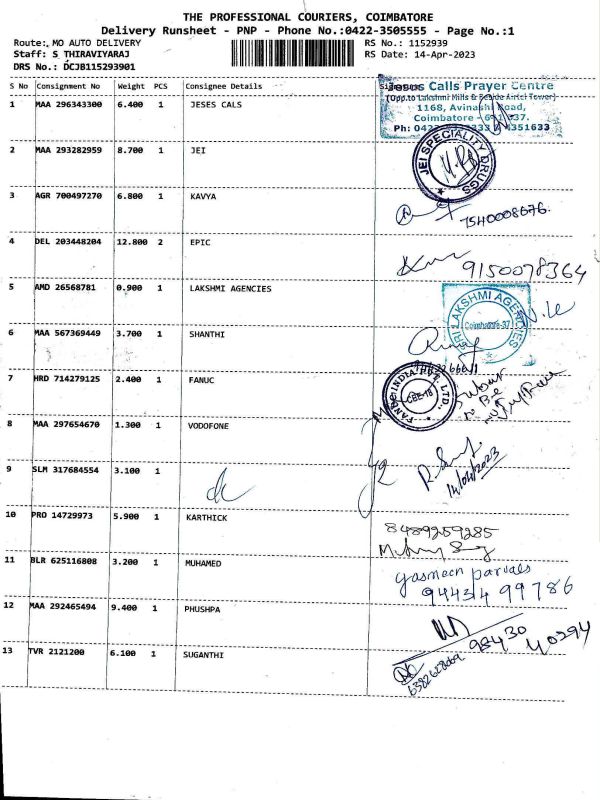 THE PROFESSIONAL COURIERS, COIMBATORE
Delivery Runsheet - PNP - Phone No.:0422-3505555 - Page No.:1
Route: MO AUTO DELIVERY RS No.: 1152939
Staff: S THIRAVIYARAJ RS Date: 14-Apr-2023
DRS No.: DCJB115293901
S No Consignment No Weight PCS Consignee Details
Jesus Calls Prayer Centre
(Opp.to Lakshmi Mills & Beside Airtel Tower)
1 MAA 296343300 6.400 1 JESES CALS
1168, Avinashi Road,
Coimbatore - 641 037.
2 MAA 293282959 8.700 1 JEI
JEI SPECIALITY DRUGS
3 AGR 700497270 6.800 1 KAVYA
7540008676
4 DEL 203448204 12.800 2 EPIC
9150078364
5 AMD 26568781 0.900 1 LAKSHMI AGENCIES
SRI LAKSHMI AGENCIES
Coimbatore-37
6 MAA 567369449 3.700 1 SHANTHI
7 HRD 714279125 2.400 1 FANUC
FANUC INDIA PVT. LTD.
CBE-18
8 MAA 297654670 1.300 1 VODOFONE
9 SLM 317684554 3.100 1
14/04/2023
10 PRO 14729973 5.900 1 KARTHICK
8489259285
11 BLR 625116808 3.200 1 MUHAMED
Yasmeen parvals
94434 99786
12 MAA 292465494 9.400 1 PHUSHPA
98430 40294
13 TVR 2121200 6.100 1 SUGANTHI